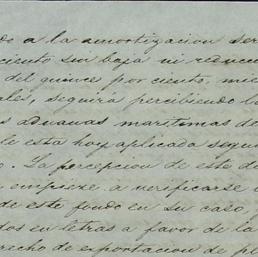 do a la amortizacion ser
ciento sin baja ni reducc
del quince por ciento, mie
ales, seguirá percibiendo la
s aduanas maritimas de
le esta hoy aplicada segun
o. La percepcion de este de
empieze a verificarse
de este fondo en su caso, y
dos en letras a favor de la
erecho de exportacion de pl